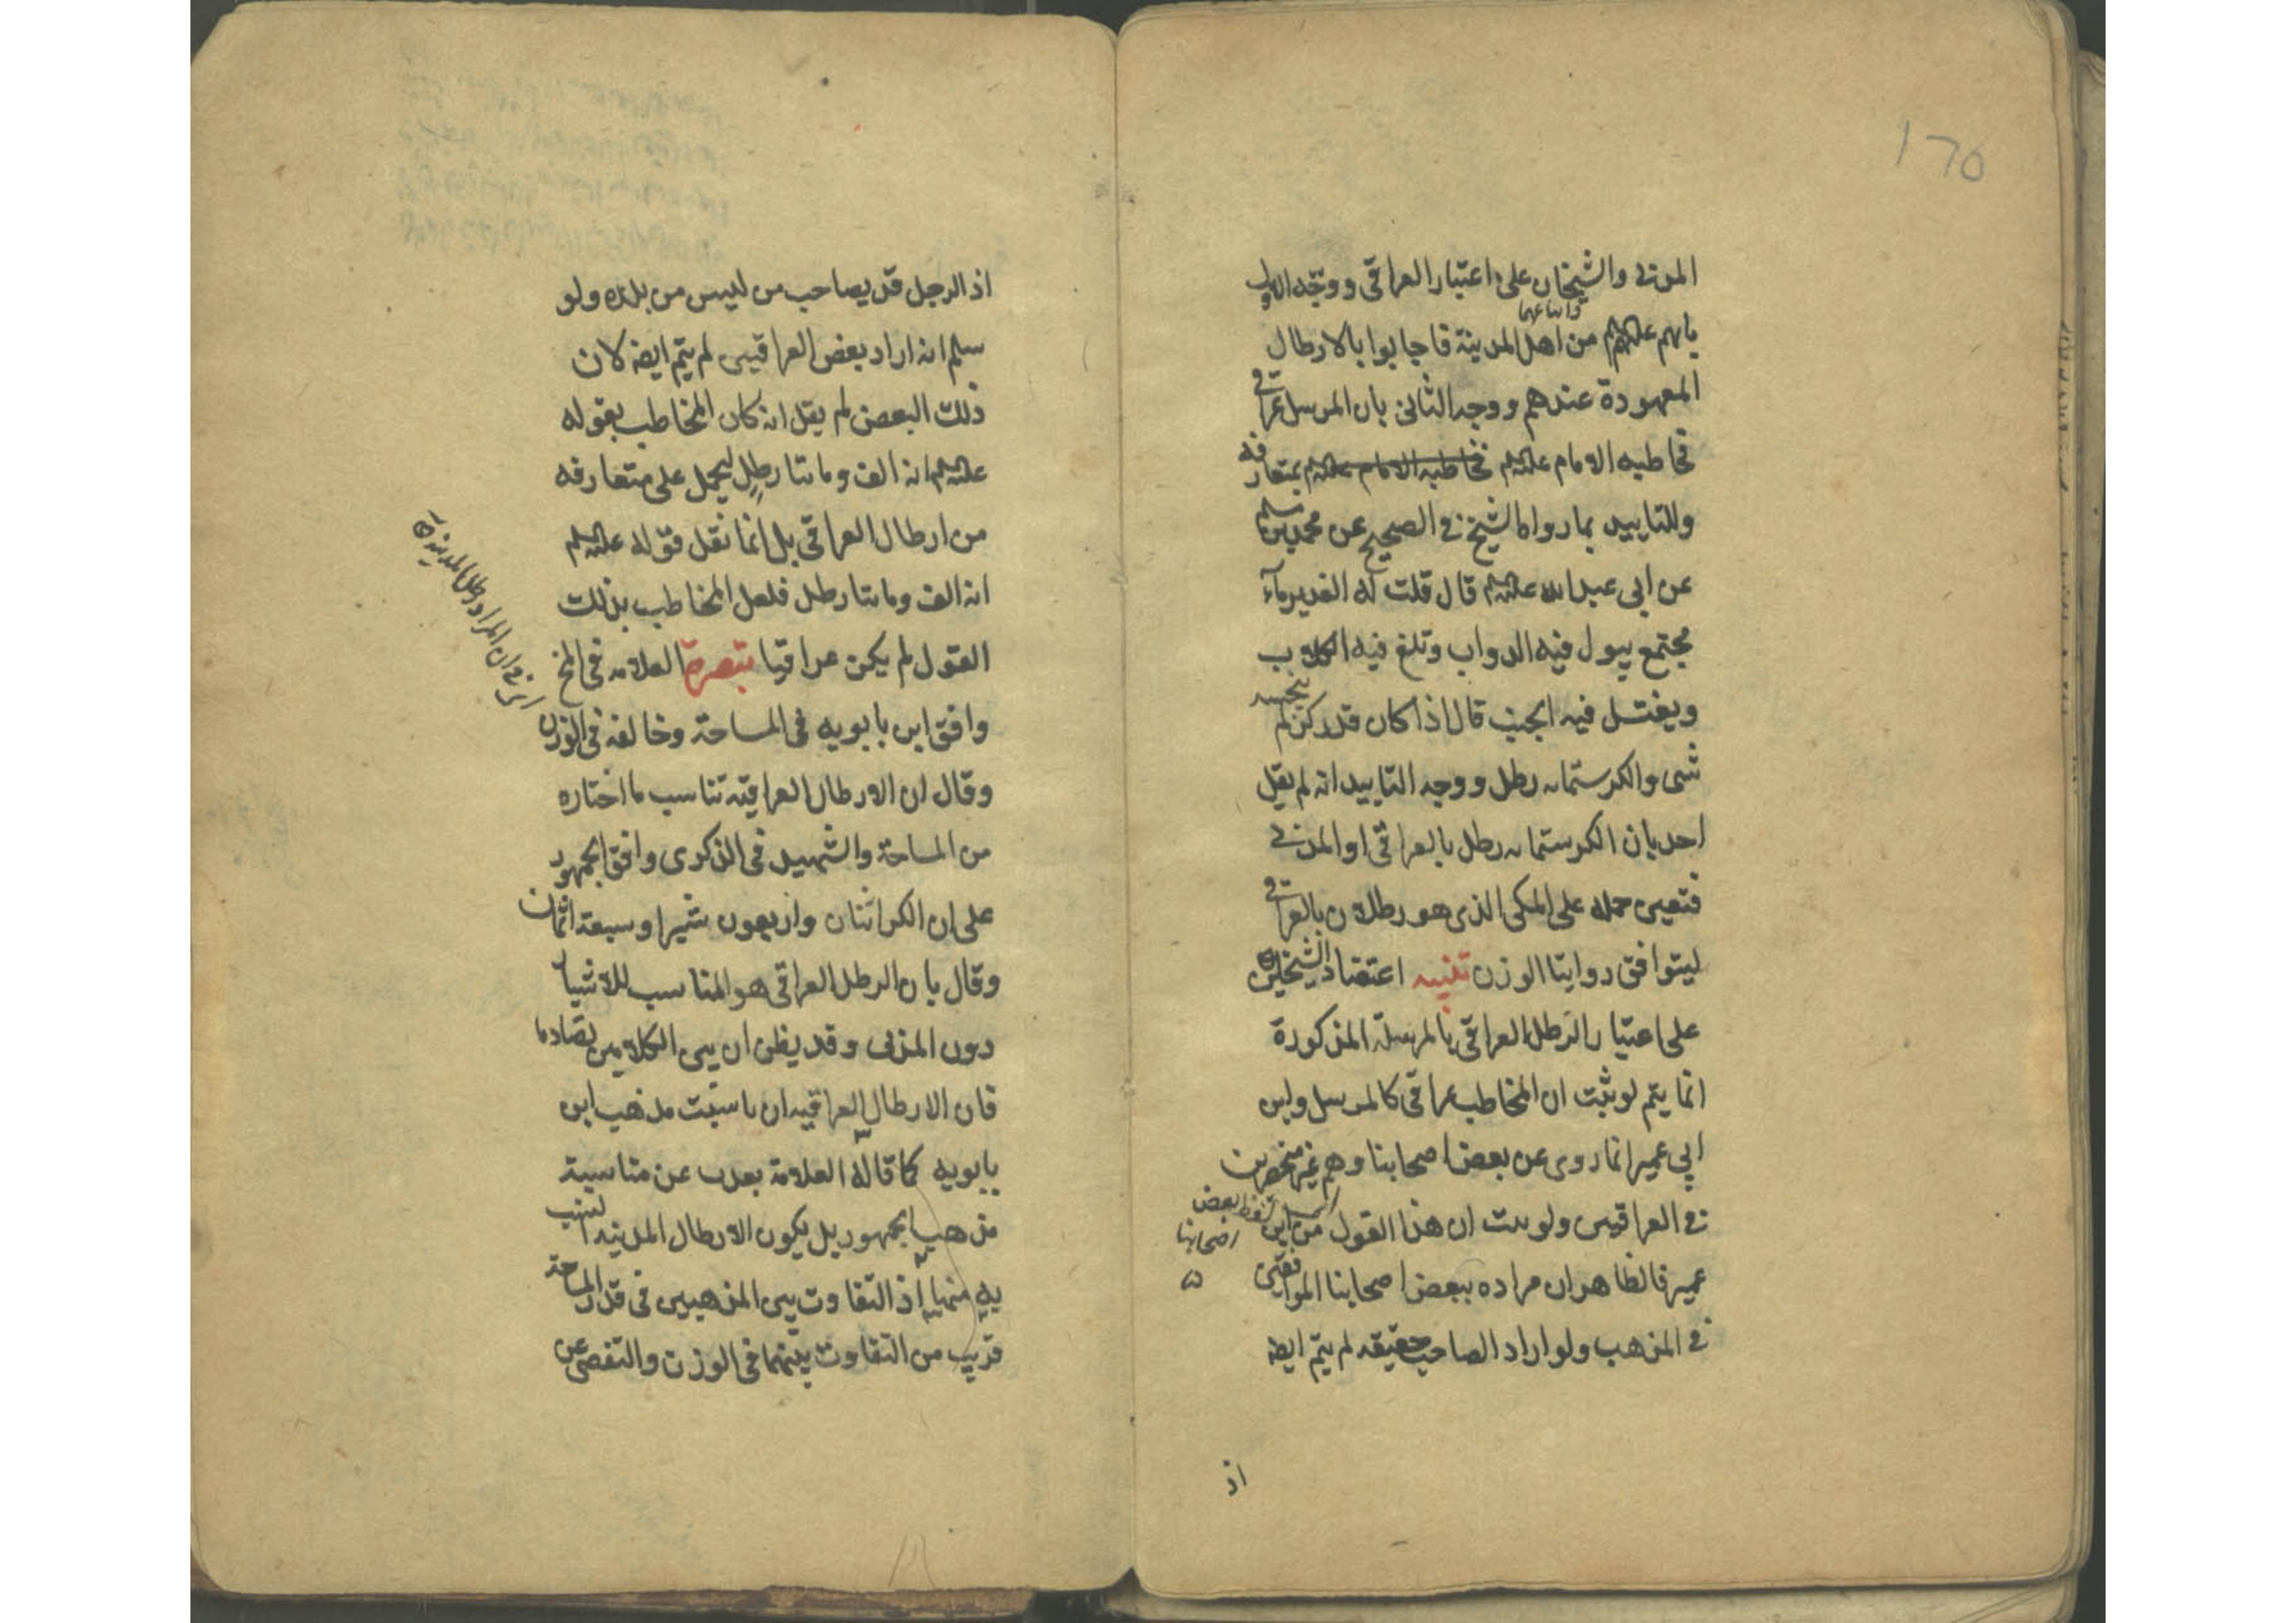 المدني والشيخان على اعتبار العراقي ووجه الاول
واتباعهما
بانهم عليهم من اهل المدينة فاجابوا بالارطال
المعهودة عندهم ووجه الثاني بان المرسل عراقي
فخاطبه الامام عليه السلم فخاطبه الامام عليه السلم بمتعارفه
وللتاييد بما رواه الشيخ في الصحيح عن محمد بن مسلم
عن ابي عبد الله عليه السلم قال قلت له الغدير ماء
مجتمع يبول فيه الدواب وتلغ فيه الكلاب
ويغتسل فيه الجنب قال اذا كان قدر كر لم ينجسه
شي والكر ستمائه رطل ووجه التاييد انه لم يقل
احد بان الكر ستمائه رطل بالعراقي او المدني
فتعين حمله على المكي الذي هو رطلان بالعراقي
ليتوافق روايتا الوزن تنبيه اعتضاد الشيخين
على اعتبار الرطل العراقي بالمرسلة المذكورة
انما يتم لو ثبت ان المخاطب عراقي كالمرسل وابن
ابي عمير انما روى عن بعض اصحابنا وهم غير منحصرين
في العراقيين ولو ثبت ان هذا القول من ابن ابي
لفظ بعض
اصحابنا
عمير فالظاهر ان مراده ببعض اصحابنا الموافقين
في المذهب ولو اراد الصاحب حقيقه لم يتم ايضا
اذ
اذ الرجل قد يصاحب من ليس من بلده ولو
سلم انه اراد بعض العراقيين لم يتم ايضا لان
ذلك البعض لم يقل انه كان المخاطب بقوله
عليه السلم انه الف ومائتا رطل ليحمل على متعارفه
من ارطال العراقي بل انما نقل قوله عليه السلم
انه الف ومائتا رطل فلعل المخاطب بذلك
القول لم يكن عراقيا تبصرة العلامه في المخ
وافق ابن بابويه في المساحة وخالفه في الوزن
ان المراد رطل المدينة
وقال ان الارطال العراقية تناسب ما اختاره
من المساحة والشهيد في الذكرى وافق الجمهور
على ان الكر اثنان واربعون شبرا وسبعة اثمان
وقال بان الرطل العراقي هو المناسب للاشبار
دون المدني وقد يظن ان بين الكلامين تصادما
فان الارطال العراقيه ان ناسبت مذهب ابن
بابويه كما قاله العلامة بعدت عن مناسبة
مذهب الجمهور بل يكون الارطال المدنيه انسب
به منها اذ التفاوت بين المذهبين في قدر المساحة
قريب من التفاوت بينهما في الوزن والتفصي عن